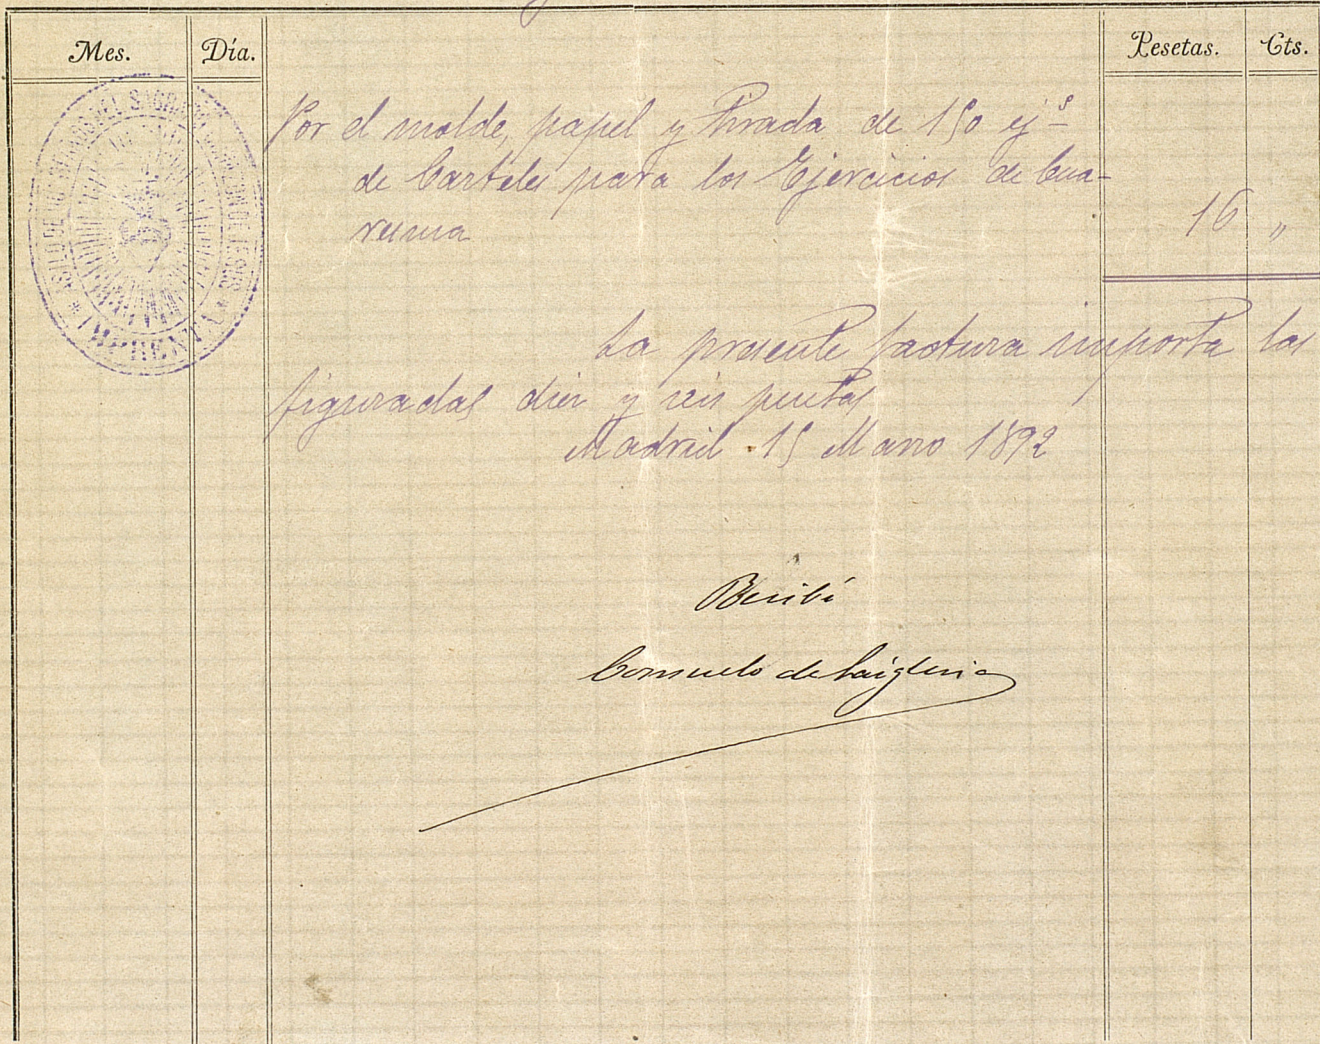 Mes.
Día.
Pesetas.
Cts.
ASILO DE HUERFANOS DEL SAGRADO CORAZON DE JESUS
* IMPRENTA *
Por el molde, papel y tirada de 150 ejs
de Carteles para los Ejercicios de Cua-
resma
16 "
La presente factura importa las
figuradas diez y seis pesetas
Madrid 15 Marzo 1892
Recibí
Consuelo de Laiglesia